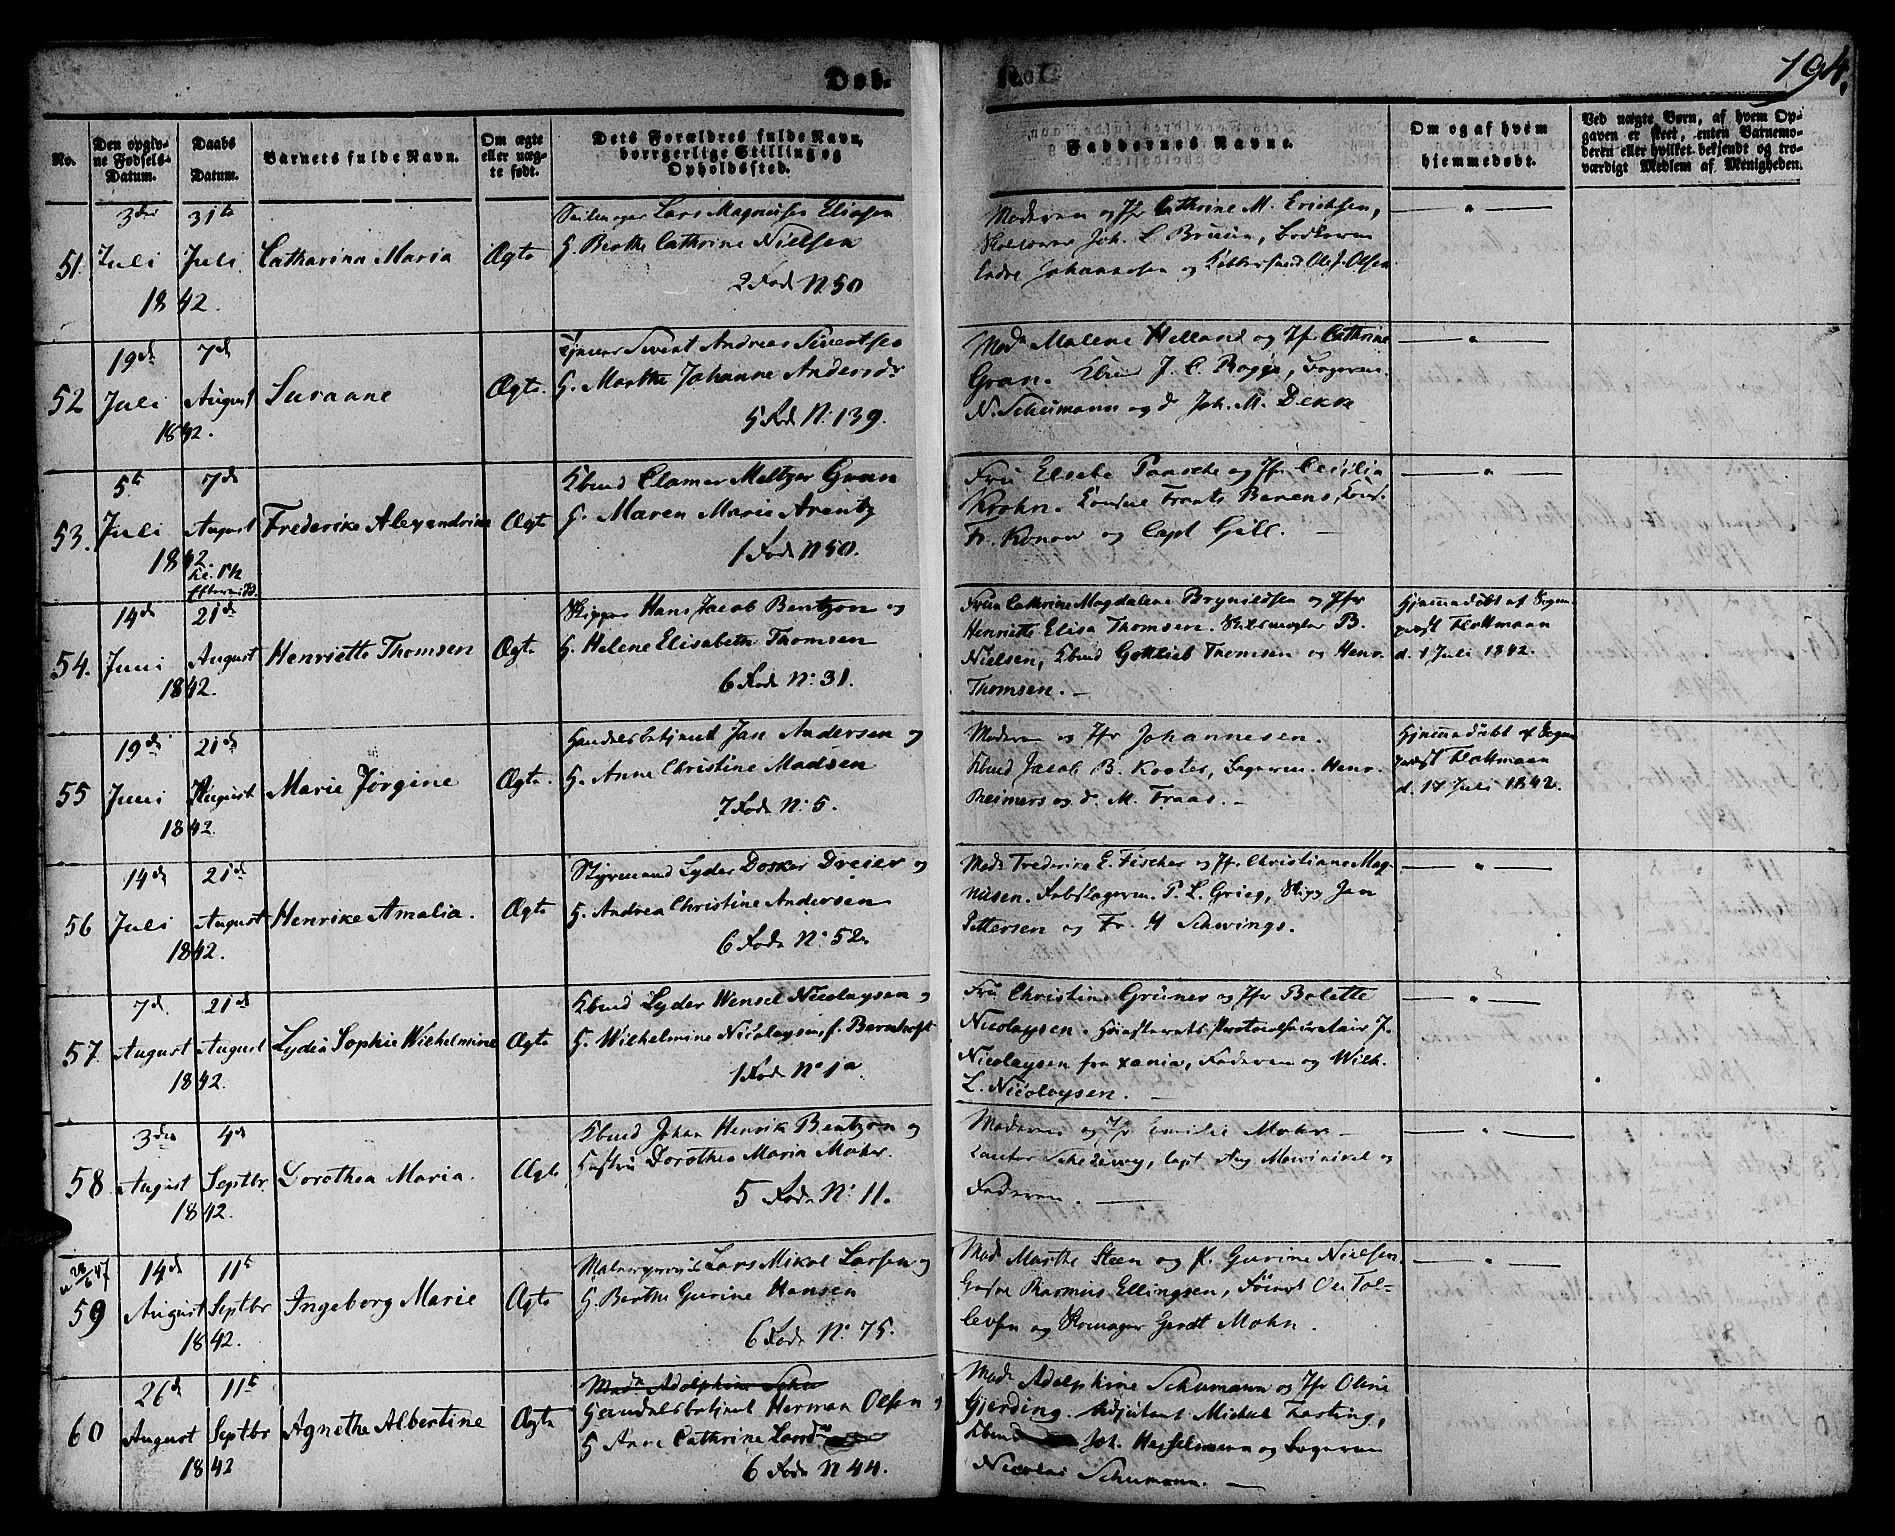 Døb-
194.
No.
Den opgiv-
ne Fødsels-
Datum.
Daabs
Datum.
Barnets fulde Navn.
Om ægte
eller uæg-
te født.
Dets Forældres fulde Navn,
borrgerlige Stilling og
Opholdssted.
Faddernes Navne.
Om og af hvem
hjemmedøbt.
Ved uægte Børn, af hvem Op-
gaven er skeet, enten Barnemo-
deren eller hvilket bekjendt og tro-
værdigt Medlem af Menigheden.
51.
3die
Juli
1842.
31te
Juli
Catharina Maria
Ægte
Lars Magnus Eliasen
H. Berthe Cathrine Nielsen
2 Rode N. 50
Moderen og Jfr Cathrine M. Erichsen,
Joh. L Bruun,
Endre Johannesen og Ole J. Olsen
52
19de
Juli
1842.
7de
August
Susanne
Ægte.
Sivert Andreas Sivertsen
H. Marthe Johanne Andersdr
5 Rode N: 139.
Mad. Malene Helland og Jfr Cathrine
Gran. Kbmd J. C. Rogge,
N. Schumann og do Joh. M. Dekke
53.
5te
Juli
1842.
7de
August
Kl. 5½
Efterm
Frederike Alexandrine
Ægte
Kbmd Clamer Meltzer Gran
H. Maren Marie Arentz
1 Rode N 50.
Fru Elsebe Paasche og Jfr Cecilia
Krohn. Consul Fraats Barens,
Fr. Konow og Capt Gill. —
54.
14de
Juni
1842.
21de
August
Henriette Thomsen
Ægte.
Skipper Hans Jacob Bentzon og
H. Helene Elisabeth Thomsen
6 Rode N: 31.
Fru Cathrine Magdalene Brynildsen og Jfr
Henriette Elisa Thomsen. B.
Nielsen, Kbmd Gottlieb Thomsen og Henr.
Thomsen. —
Hjemmedöbt af Sogne-
præst Flottmann
d. 1 Juli 1842.
55
19de
Juni
1842.
21de
August
Marie Jörgine
Ægte.
Handelsbetjent Jan Andersen og
H. Anne Christine Madsen
7 Rode N: 5.
Moderen og Jfr Johannesen.
Kbmd Jacob B. Kooter, Henr.
Reimers og do M. Traae. —
Hjemmedöbt af Sogne-
præst Flottmann
d. 17 Juli 1842.
56
14de
Juli
1842.
21de
August
Henrike Amalia.
Ægte
Styrmand Lyder Dosker Dreier og
H. Andrea Christine Andersen
6 Rode N: 52.
Mad. Frederike E. Fischer og Jfr. Christiane Mag-
nusen. P. L. Grieg, Skipp Jan
Pettersen og Fr. H Schwings.
57.
7de
August
1842.
21de
August
Lydia Sophie Wilhelmine
Ægte
Kbmd Lyder Wensel Nicolaysen og
H. Wilhelmine Nicolaysen, f. Berndtoft
1 Rode No 1a
Fru Christine Grüner og Jfr Bolette
Nicolaysen. Höiesterets Protocolsecretair J.
Nicolaysen fra Xania, Faderen og Wilh.
L. Nicolaysen. —
58.
3die
August
1842.
4de
Septbr.
Dorothea Maria.
Ægte
Kbmd Johan Henrik Bentzon og
Hustru Dorothea Maria Mohr.
5 Rode N: 11.
Moderen og Jfr Emilie Mohr —
Capt Aug og
Faderen. —
59
14de
August
1842.
11te
Septbr
Ingeborg Marie
Ægte
Lars Mikal Larsen og
H. Berthe Gurine Hansen
6 Rode N: 75.
Mad. Marthe Steen og P. Gurine Nielsen.
Rasmus Ellingsen, Ole Tol-
levsen og Skomager Gerdt Mohn.
60
26de
August
1842
11te
Septbr
Agnethe Albertine
Ægte
Mad. Adolphine Schu
Handelsbetjent Herman Olsen og
H Anne Cathrine
6 Rode N 44.
Mad. Adolphine Schumann og Jfr Oline
Gjerding. Adjutant Michel Fasting,
Kbmd Joh. Hesselmann og
Nicolai Schumann. —